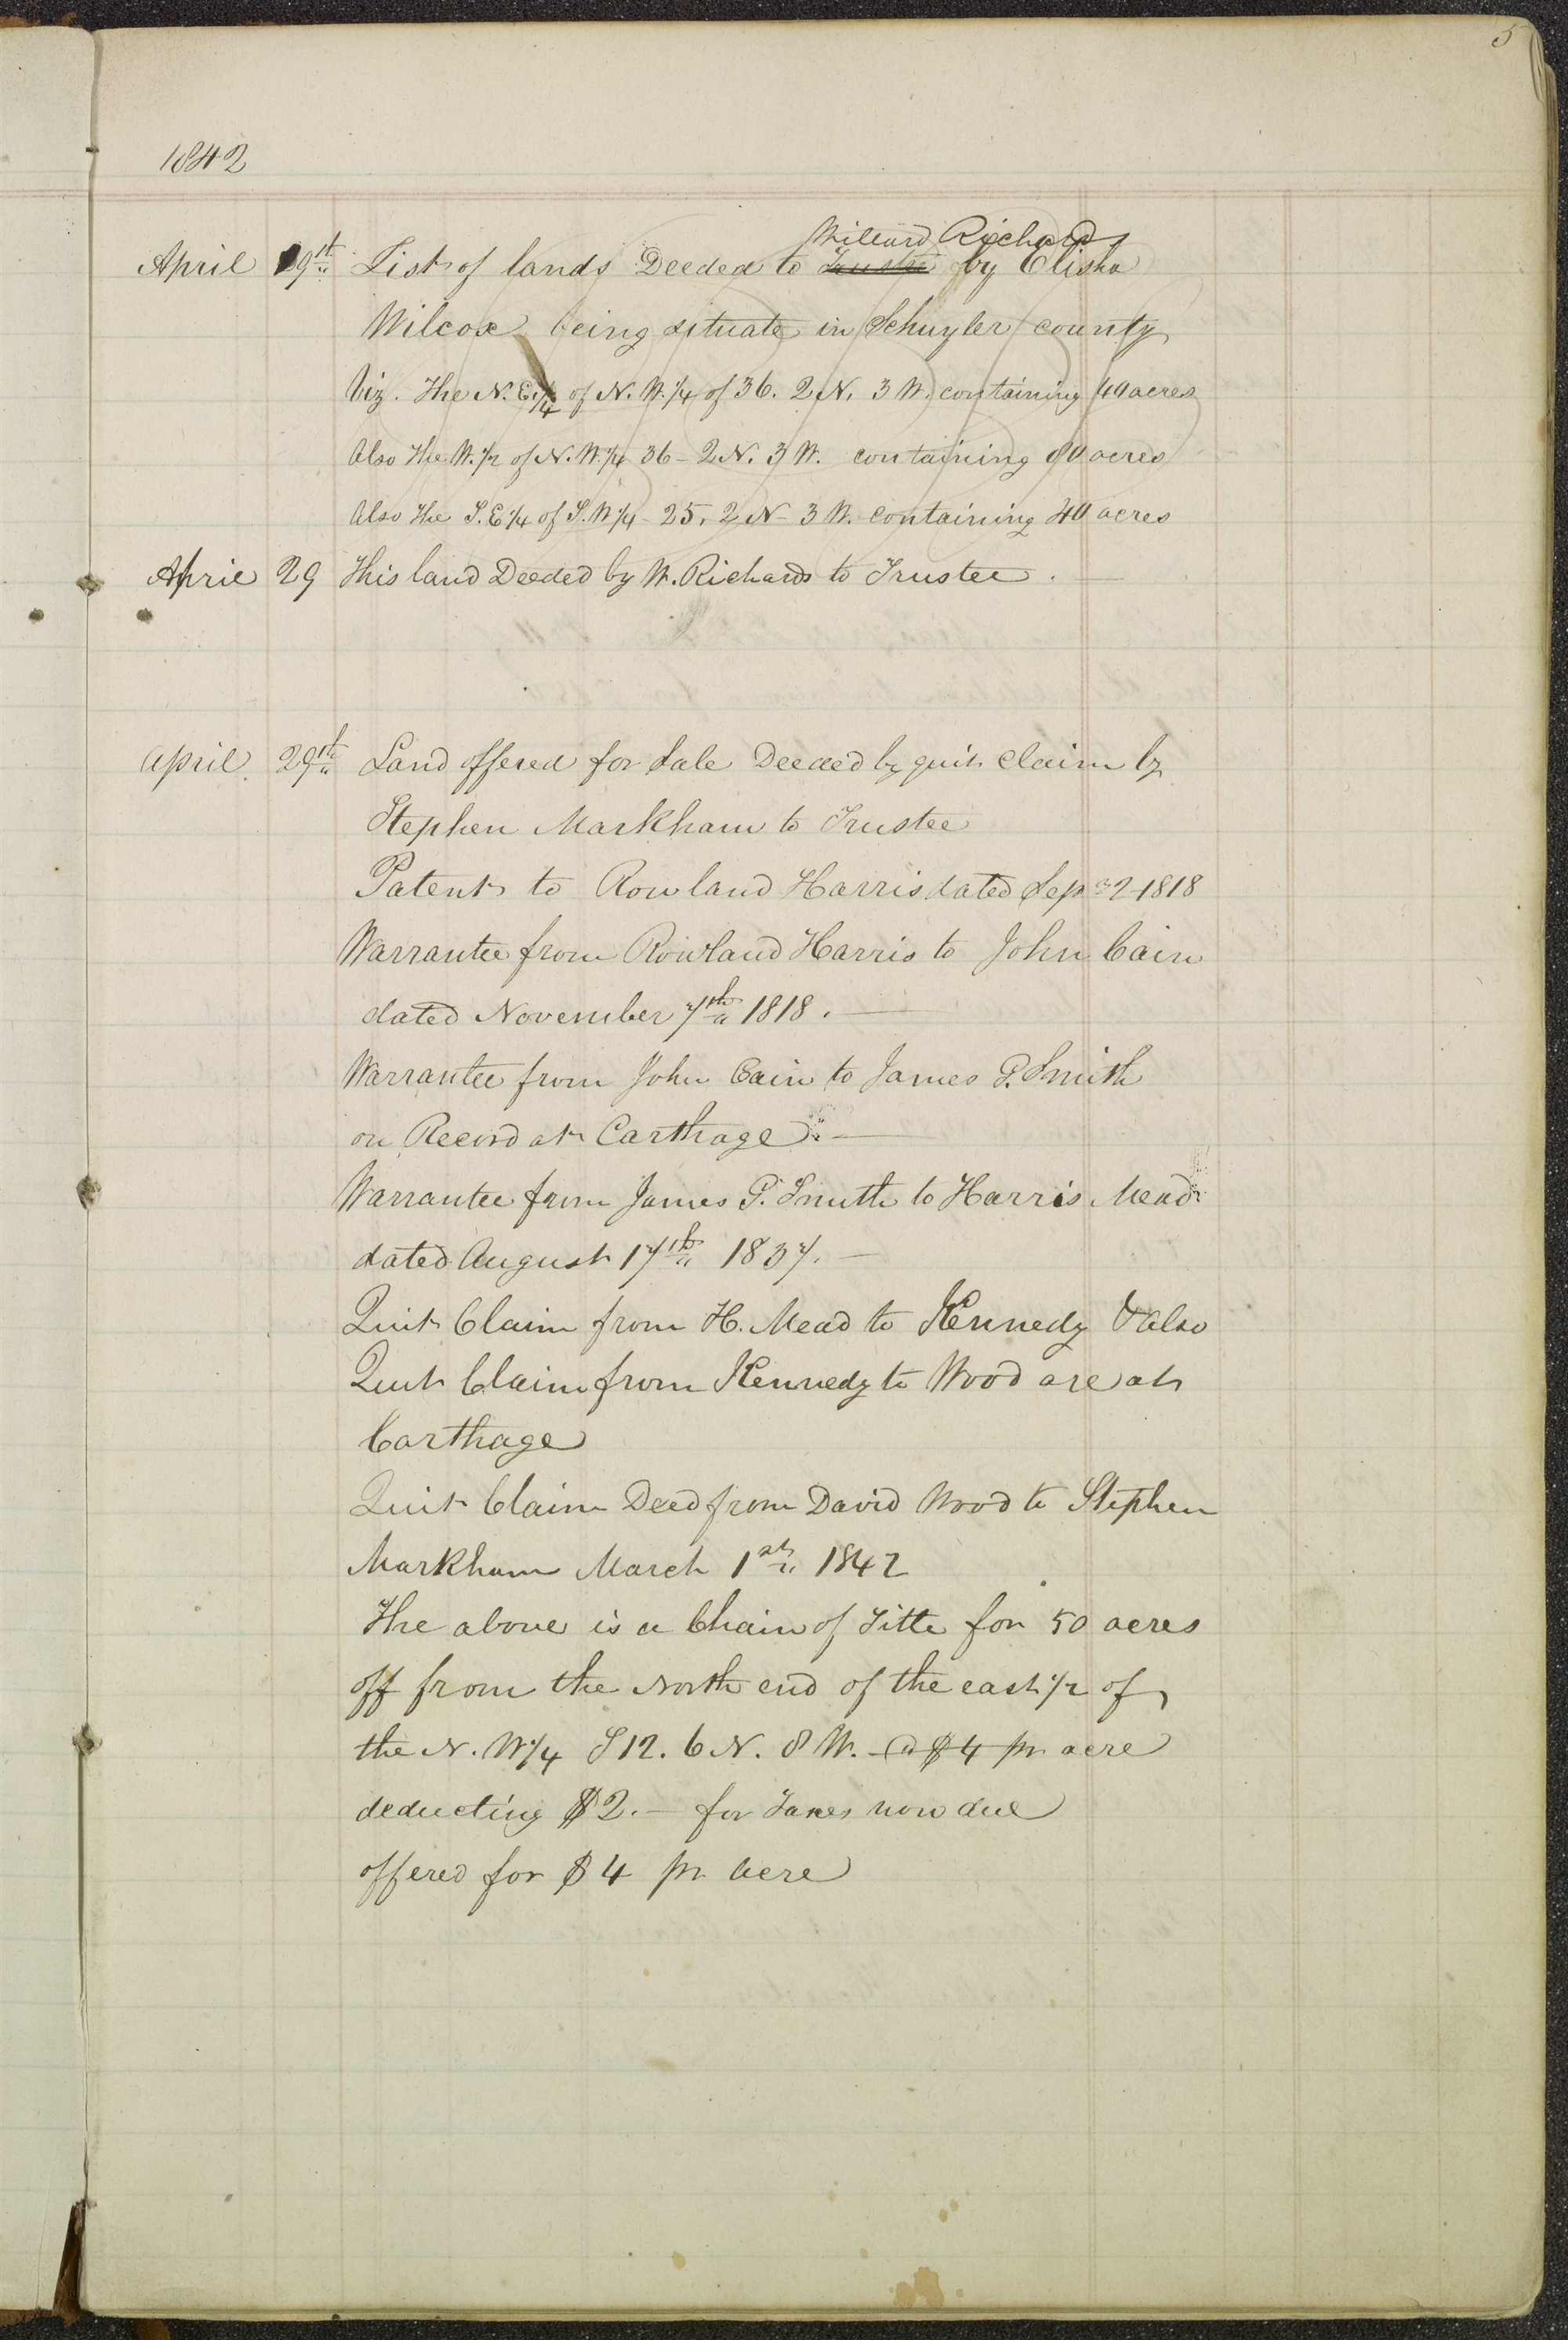 5
1842
Willard Richards
April 19th List of lands Deeded to Trustee by Elisha
Wilcox being situate in Schuyler county
Viz. The N. E. 1/4 of N. W. 1/4 of 36. 2 N. 3 W. containing 40 acres
Also The W. 1/2 of N. W. 1/4 36 - 2 N. 3 W. containing 80 acres
Also The S. E 1/4 of S. W 1/4 - 25. 2 N - 3 W. containing 40 acres
April 29 This land Deeded by W. Richards to Trustee.
April 29th Land offered for Sale Deeded by quit claim by
Stephen Markham to Trustee
Patent to Rowland Harris dated Sep 1818
Warrantee from Rowland Harris to John Cain
dated November 7th 1818.
Warrantee from John Cain to James P. Smith
on Record at Carthage
Warrantee from James P. Smith to Harris Mead
dated August 17th 1837.
Quit Claim from H. Mead to Kennedy & Also
Quit Claim from Kennedy to Wood are at
Carthage
Quit Claim Deed from David Wood to Stephen
Markham March 1st 1842
The above is a Chain of Title for 50 acres
off from the North end of the east 1/2 of
the N. W 1/4 S 12. 6 N. 8 W. @ $4 pr acre
deducting $2.- for Taxes now due
offered for $4 pr acre